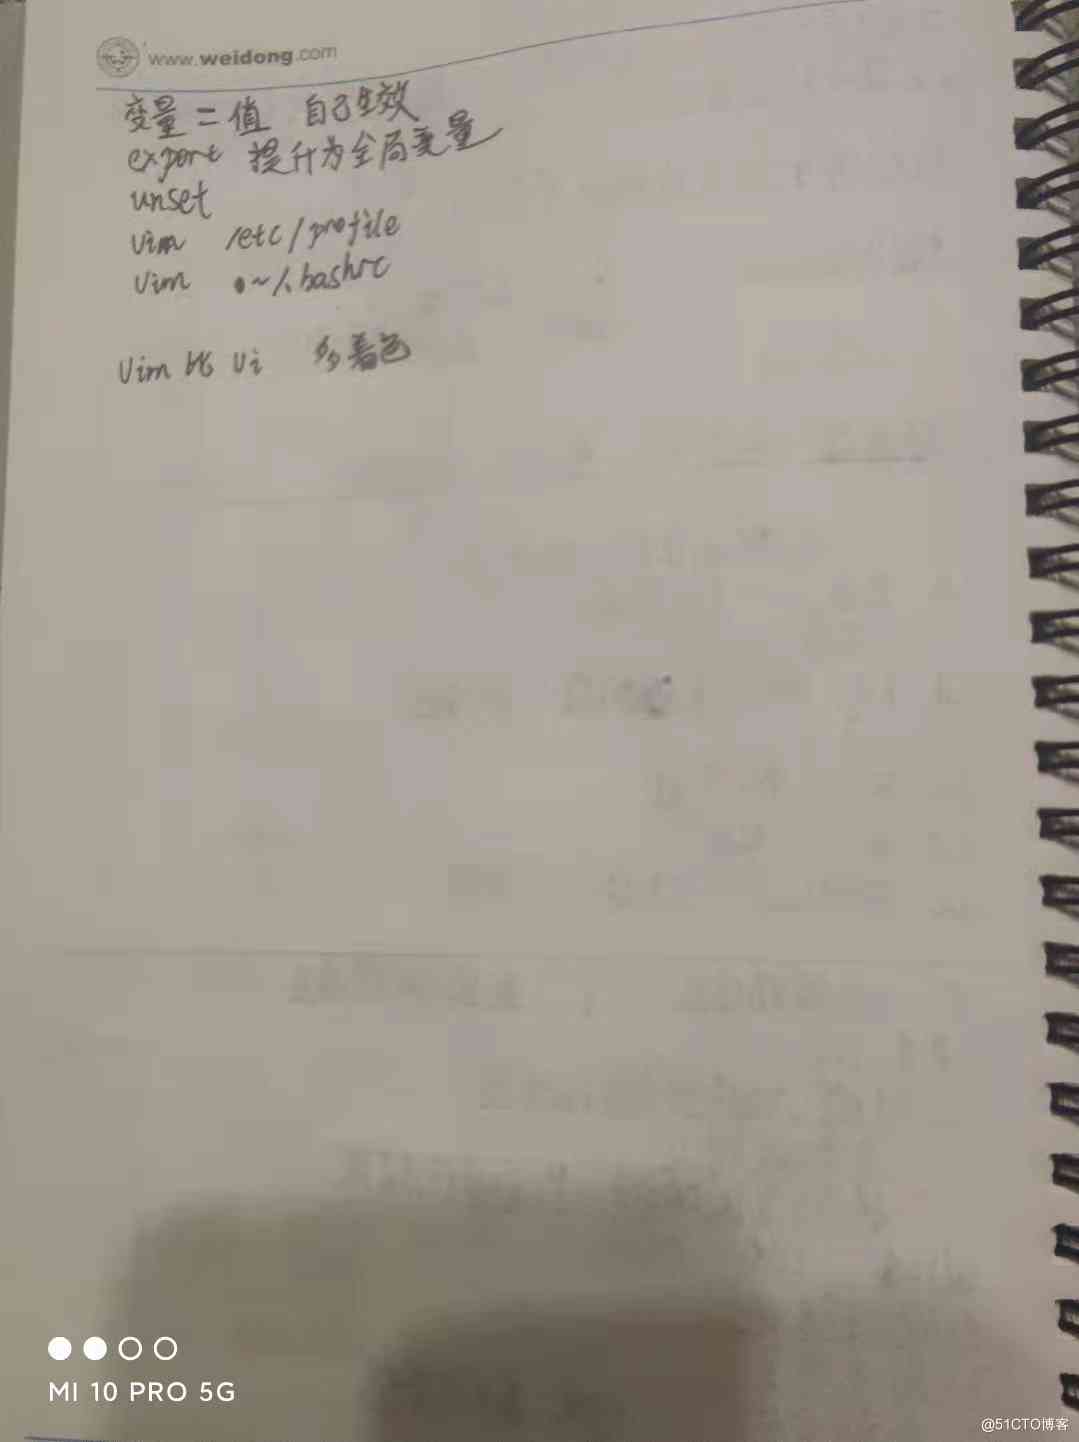 www.weidong.com
变量=值 自己生效
export 提升为全局变量
unset
vim /etc/profile
vim ~/.bashrc
vim 比 vi 多着色
MI 10 PRO 5G
@51CTO博客